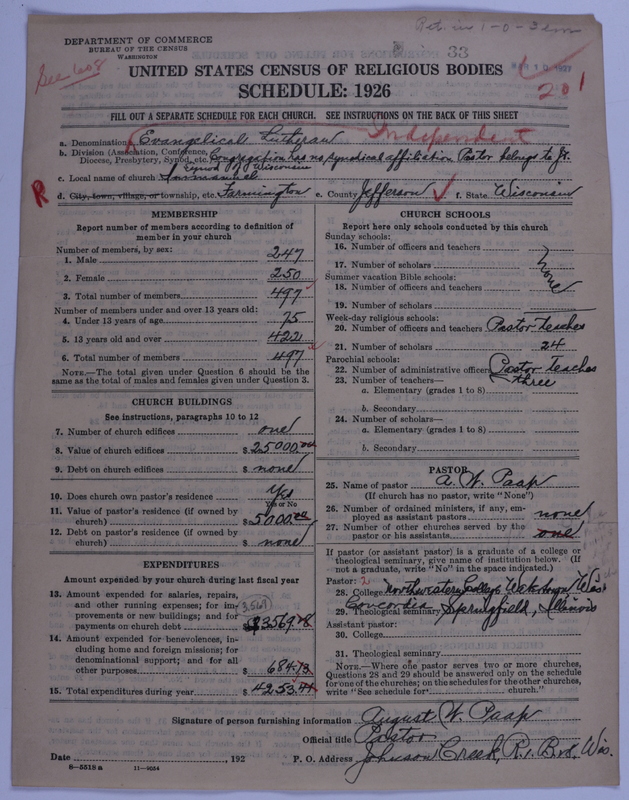 Ret. in 1-0-3 em
DEPARTMENT OF COMMERCE
BUREAU OF THE CENSUS
WASHINGTON
33
See 608
UNITED STATES CENSUS OF RELIGIOUS BODIES
SCHEDULE: 1926
201
FILL OUT A SEPARATE SCHEDULE FOR EACH CHURCH. SEE INSTRUCTIONS ON THE BACK OF THIS SHEET
Independent
a. Denomination Evangelical Lutheran
b. Division (Association, Conference, Diocese, Presbytery, Synod, etc. Congregation has no synodical affiliation Pastor belongs to Jt.
Synod of Wisconsin
c. Local name of church Immanuel
R d. City, town, village, or township, etc. Farmington e. County Jefferson f. State Wisconsin
MEMBERSHIP
Report number of members according to definition of
member in your church
Number of members, by sex:
1. Male 247
2. Female 250
3. Total number of members 497
Number of members under and over 13 years old:
4. Under 13 years of age 75
5. 13 years old and over 422
6. Total number of members 497
NOTE.—The total given under Question 6 should be the
same as the total of males and females given under Question 3.
CHURCH BUILDINGS
See instructions, paragraphs 10 to 12
7. Number of church edifices one
8. Value of church edifices $ 25000.00
9. Debt on church edifices $ none
10. Does church own pastor's residence Yes
Yes or No
11. Value of pastor's residence (if owned by
church) $ 5000.00
12. Debt on pastor's residence (if owned by
church) $ none
EXPENDITURES
Amount expended by your church during last fiscal year
13. Amount expended for salaries, repairs,
and other running expenses; for im-
provements or new buildings; and for
payments on church debt 3569 $3569.28
14. Amount expended for benevolences, in-
cluding home and foreign missions; for
denominational support; and for all
other purposes $ 684.13
15. Total expenditures during year $ 4253.41
CHURCH SCHOOLS
Report here only schools conducted by this church
Sunday schools:
16. Number of officers and teachers
17. Number of scholars
none
Summer vacation Bible schools:
18. Number of officers and teachers
19. Number of scholars
Week-day religious schools:
20. Number of officers and teachers Pastor teaches
21. Number of scholars 24
Parochial schools:
22. Number of administrative officers Pastor teaches
23. Number of teachers— three
a. Elementary (grades 1 to 8)
b. Secondary
24. Number of scholars—
a. Elementary (grades 1 to 8)
b. Secondary
PASTOR
25. Name of pastor A. W. Paap
(If church has no pastor, write "None")
26. Number of ordained ministers, if any, em-
ployed as assistant pastors none
27. Number of other churches served by the
pastor or his assistants one
If pastor (or assistant pastor) is a graduate of a college or
theological seminary, give name of institution below. (If
not a graduate, write "No" in the space indicated.)
Pastor: 2
28. College Northwestern College Watertown, Wis.
29. Theological seminary Concordia, Springfield, Illinois
Assistant pastor:
30. College
31. Theological seminary
NOTE.—Where one pastor serves two or more churches,
Questions 28 and 29 should be answered only on the schedule
for one of the churches; on the schedules for the other churches,
write "See schedule for church."
Signature of person furnishing information August W. Paap
Official title Pastor
Date , 192 P. O. Address Johnson Creek, R. 1 Wis.
8—5518 a 11—9054